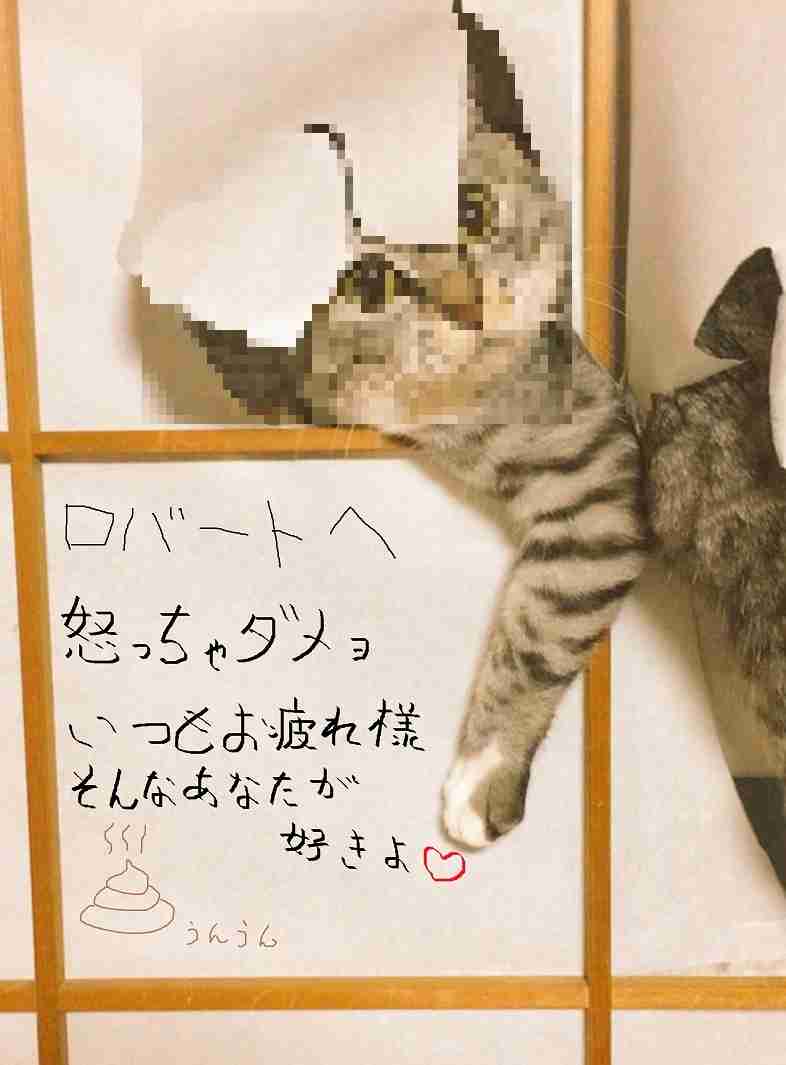 ロバートへ
怒っちゃダメョ
いつもお疲れ様
そんなあなたが
好きよ♡
うんうん